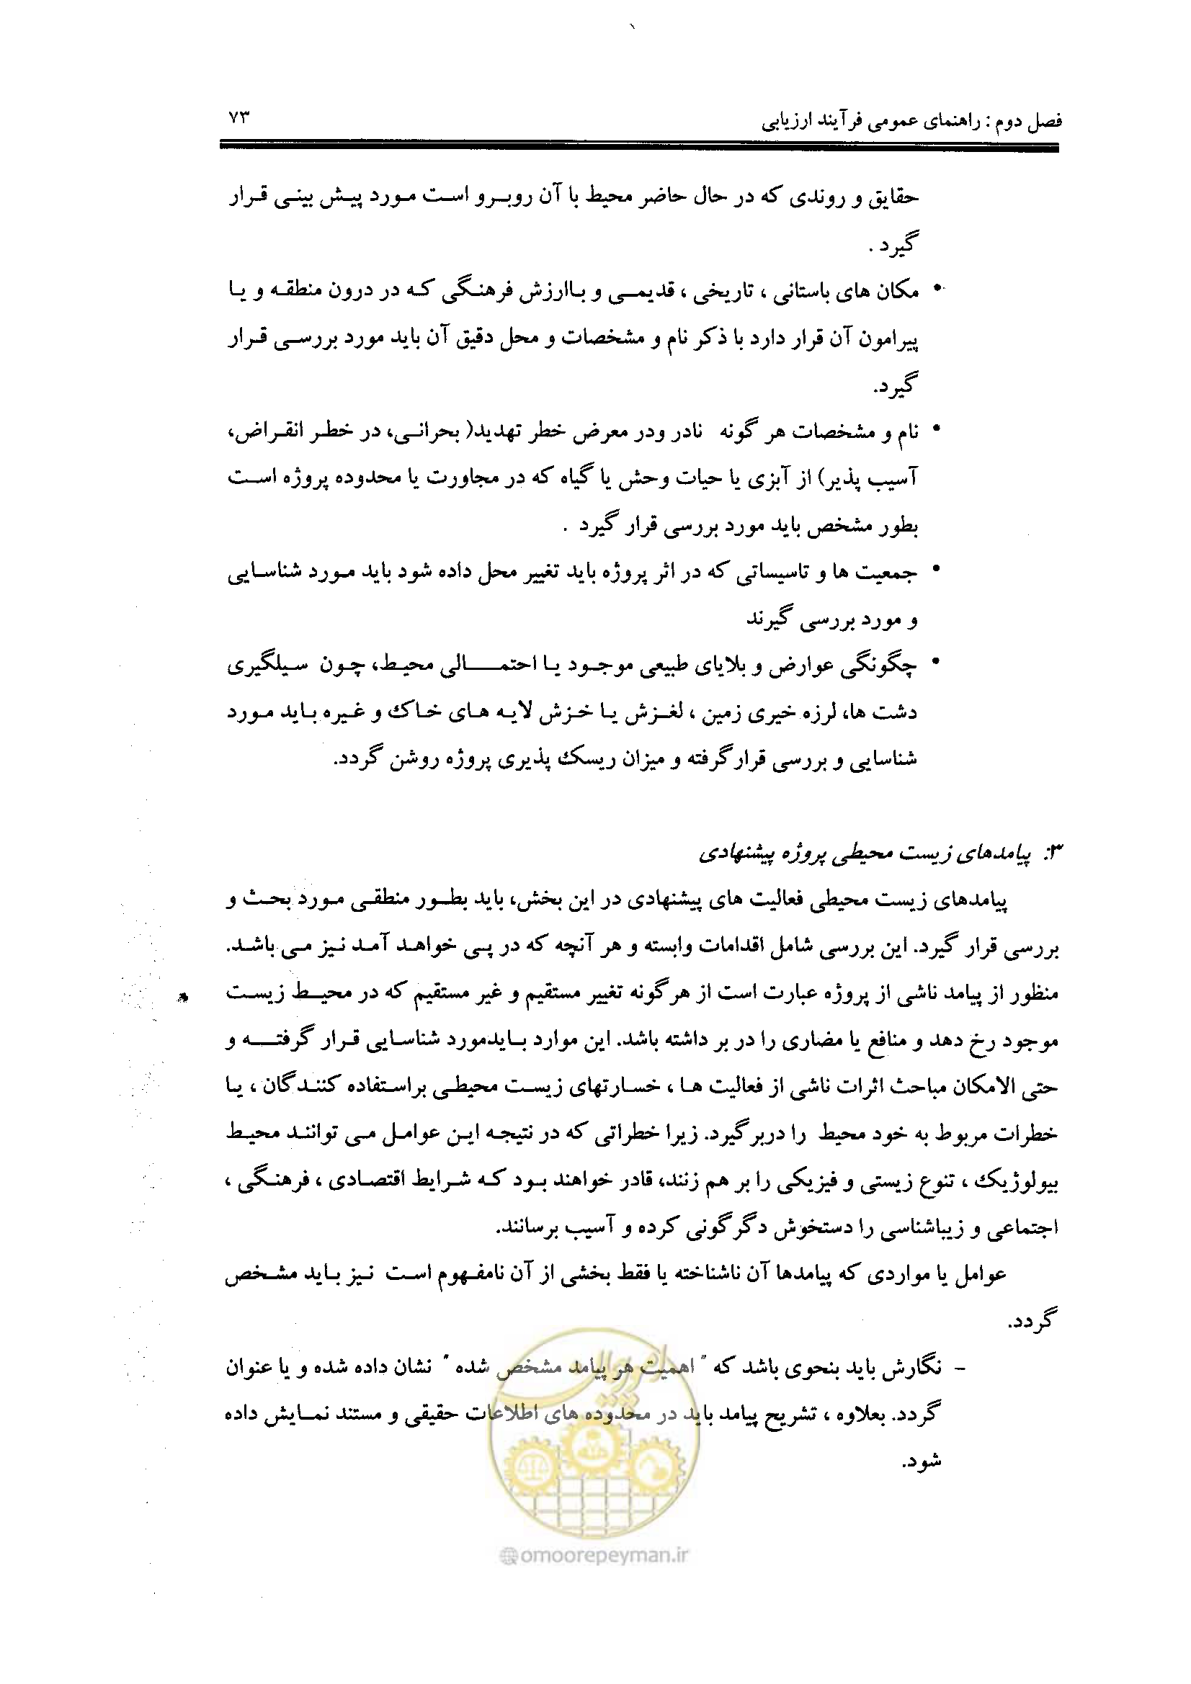 فصل دوم : راهنمای عمومی فرآیند ارزیابی
۷۳
حقایق و روندی که در حال حاضر محیط با آن روبرو است مورد پیش بینی قرار
گیرد .
• مکان های باستانی ، تاریخی ، قدیمی و باارزش فرهنگی که در درون منطقه و یا
پیرامون آن قرار دارد با ذکر نام و مشخصات و محل دقیق آن باید مورد بررسی قرار
گیرد.
• نام و مشخصات هر گونه نادر ودر معرض خطر تهدید( بحرانی، در خطر انقراض،
آسیب پذیر) از آبزی یا حیات وحش یا گیاه که در مجاورت یا محدوده پروژه است
بطور مشخص باید مورد بررسی قرار گیرد .
• جمعیت ها و تاسیساتی که در اثر پروژه باید تغییر محل داده شود باید مورد شناسایی
و مورد بررسی گیرند
• چگونگی عوارض و بلایای طبیعی موجود یا احتمالی محیط، چون سیلگیری
دشت ها، لرزه خیری زمین ، لغزش یا خزش لایه های خاک و غیره باید مورد
شناسایی و بررسی قرارگرفته و میزان ریسک پذیری پروژه روشن گردد.
۳: پیامدهای زیست محیطی پروژه پیشنهادی
پیامدهای زیست محیطی فعالیت های پیشنهادی در این بخش، باید بطور منطقی مورد بحث و
بررسی قرار گیرد. این بررسی شامل اقدامات وابسته و هر آنچه که در پی خواهد آمد نیز می باشد.
منظور از پیامد ناشی از پروژه عبارت است از هرگونه تغییر مستقیم و غیر مستقیم که در محیط زیست
موجود رخ دهد و منافع یا مضاری را در بر داشته باشد. این موارد بایدمورد شناسایی قرار گرفته و
حتی الامکان مباحث اثرات ناشی از فعالیت ها ، خسارتهای زیست محیطی براستفاده کنندگان ، یا
خطرات مربوط به خود محیط را دربرگیرد. زیرا خطراتی که در نتیجه این عوامل می توانند محیط
بیولوژیک ، تنوع زیستی و فیزیکی را بر هم زنند، قادر خواهند بود که شرایط اقتصادی ، فرهنگی ،
اجتماعی و زیباشناسی را دستخوش دگرگونی کرده و آسیب برسانند.
عوامل یا مواردی که پیامدها آن ناشناخته یا فقط بخشی از آن نامفهوم است نیز باید مشخص
گردد.
– نگارش باید بنحوی باشد که " اهمیت هر پیامد مشخص شده " نشان داده شده و یا عنوان
گردد. بعلاوه ، تشریح پیامد باید در محدوده های اطلاعات حقیقی و مستند نمایش داده
شود.
امور پیمان
@omoorepeyman.ir